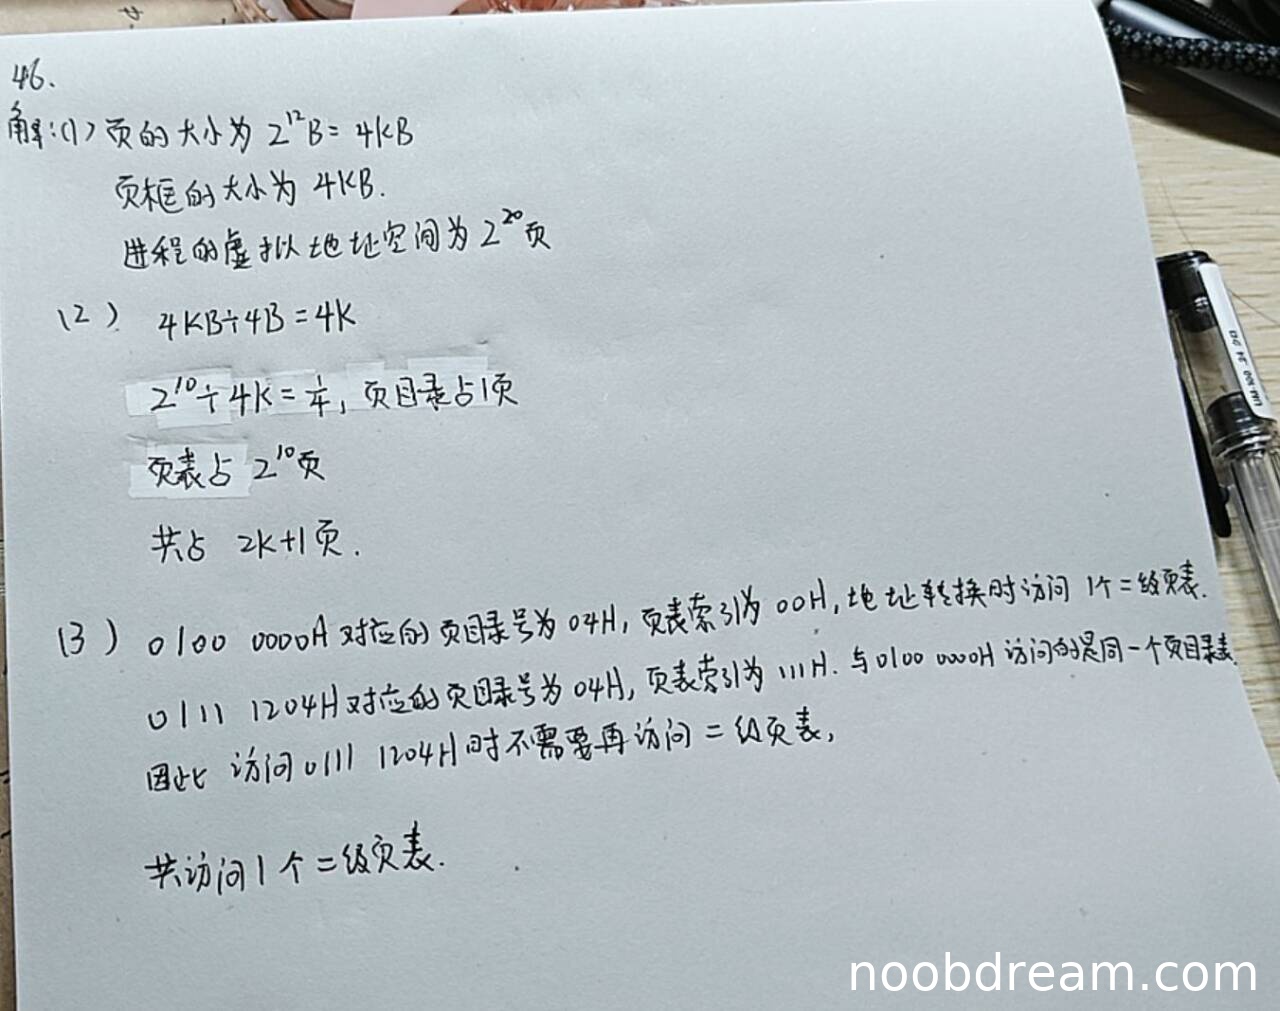 46.
解:(1) 页的大小为 2¹²B = 4KB
页框的大小为 4KB.
进程的虚拟地址空间为 2²⁰页
(2) 4KB÷4B = 4K
2¹⁰÷4K = 1/4, 页目录占1页
页表占 2¹⁰页
共占 2K+1页.
(3) 0100 0000H 对应的页目录号为 04H, 页表索引为 00H, 地址转换时访问 1个二级页表.
0111 1204H 对应的页目录号为 04H, 页表索引为 111H. 与 0100 0000H 访问的是同一个页目录表
因此 访问 0111 1204H 时不需要再访问二级页表,
共访问1个二级页表.
noobdream.com